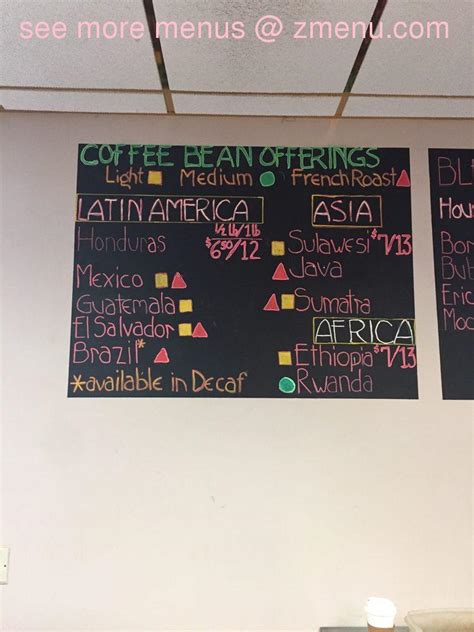 see more menus @ zmenu.com
COFFEE BEAN OFFERINGS
Light Medium French Roast
LATIN AMERICA
1/2 lb/1 lb
Honduras $6.50/12
Mexico
Guatemala
El Salvador
Brazil*
*available in Decaf
ASIA
Sulawesi $7/13
Java
Sumatra
AFRICA
Ethiopia $7/13
Rwanda
BL
Hou
Bo
Bu
Eric
Moc